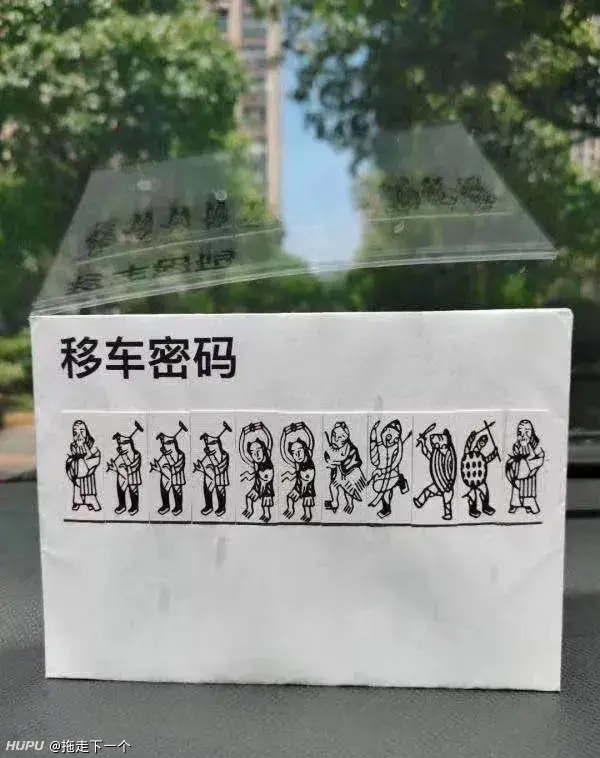 移车密码
HUPU @拖走下一个